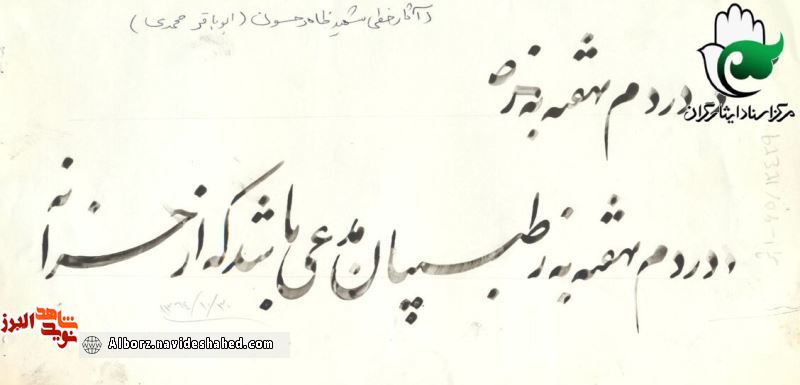 از آثار خطی شهید طاهر حسون (ابو باقر محمدی)
مرکز اسناد ایثارگران
دردم نهفته به ز
دردم نهفته به ز طبیبان مدعی باشد که از خزانه
۱۳۶۴/۱/۳۰
نوید شاهد البرز
Alborz.navideshahed.com